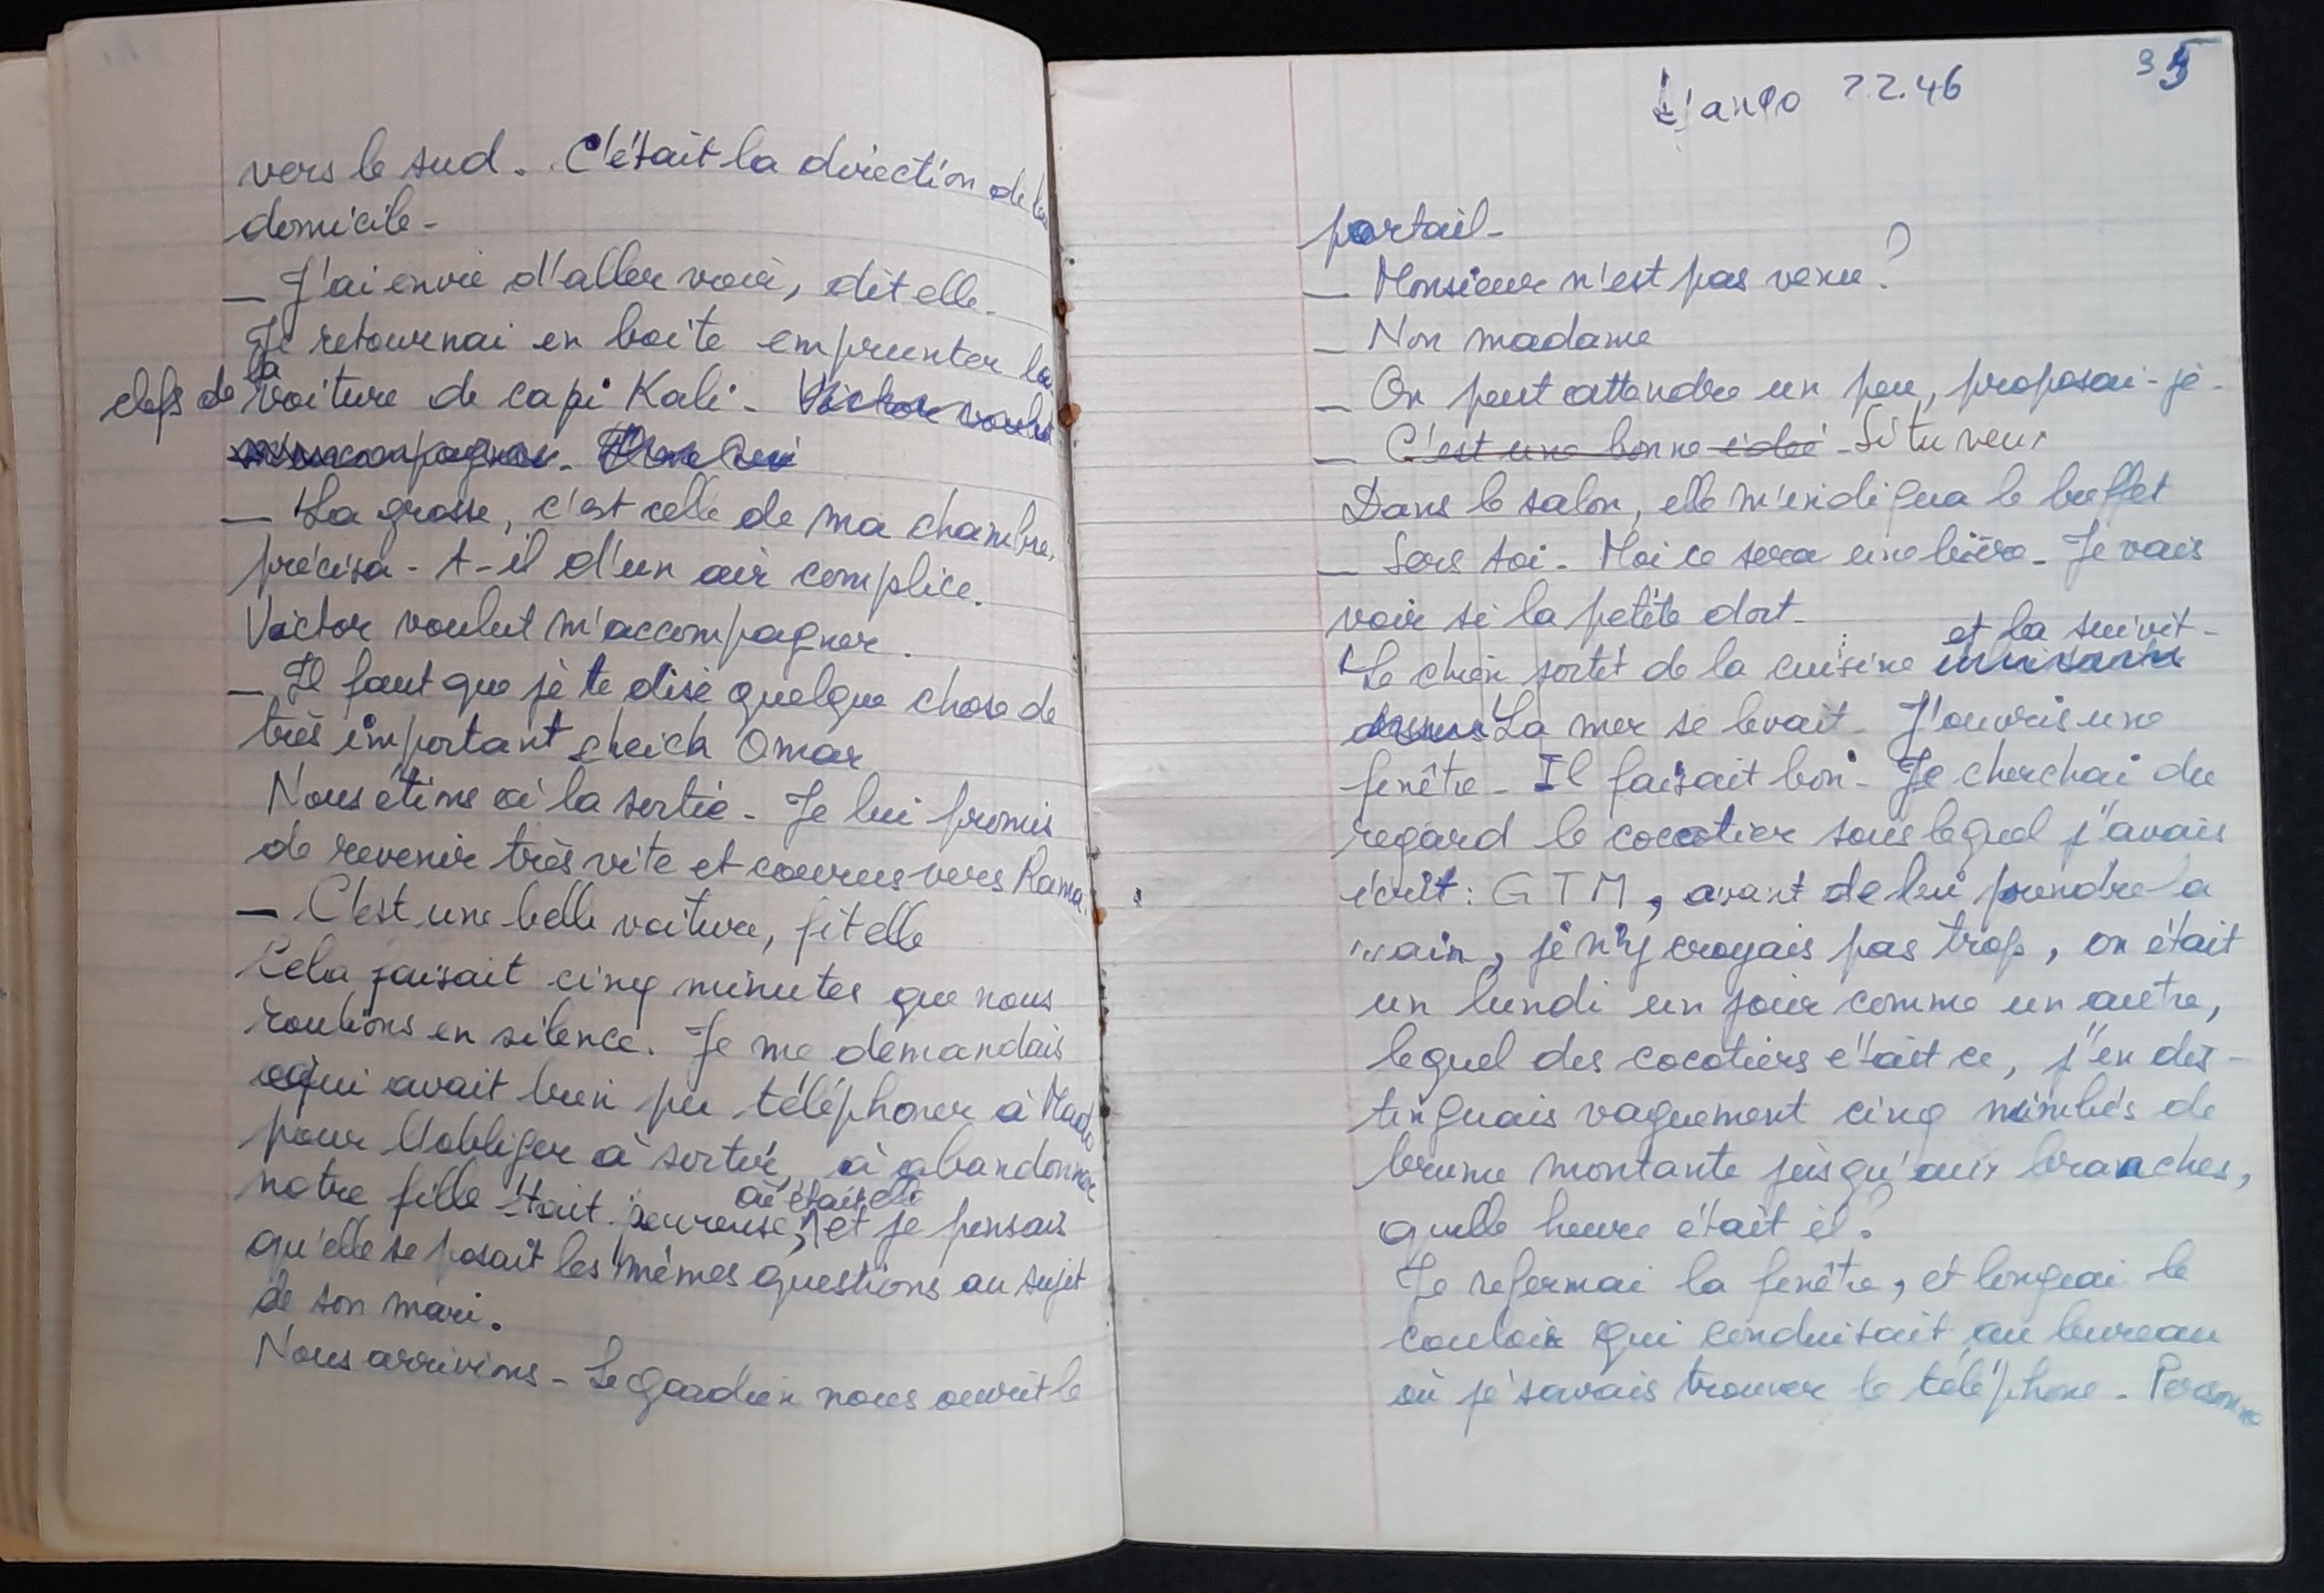 vers le sud. C'était la direction de
domicile -
— J'ai envie d'aller voir, dit elle -
Je retournai en boite emprunter les
clefs de la voiture de capi Kali - Victor voulut
m'accompagner -
— La grosse, c'est celle de ma chambre,
précisa-t-il d'un air complice.
Victor voulut m'accompagner.
— Il faut que je te dise quelque chose de
très important cheick Omar
Nous étions à la sortie - Je lui promis
de revenir très vite et courus vers Rama.
— C'est une belle voiture, fit elle
Cela faisait cinq minutes que nous
roulions en silence. Je me demandais
qui avait bien pu téléphoner à Mado
pour l'obliger à sortir, à abandonner
notre fille était peureuse, où était elle et je pensais
qu'elle se posait les mêmes questions au sujet
de son mari.
Nous arrivions - Le gardien nous ouvrit le
35
22.46
portail -
— Monsieur n'est pas venu?
— Non madame
— On peut attendre un peu, proposai-je -
— C'est une bonne idée - Si tu veux
Dans le salon, elle m'indiqua le buffet
— Sers toi - Moi ce sera une bière - Je vais
voir si la petite dort -
et la suivit -
Le chien sortit de la cuisine
La mer se levait - J'ouvris une
fenêtre - Il faisait bon - Je cherchai du
regard le cocotier sous lequel j'avais
écrit : G T M, avant de lui prendre la
main, je n'y croyais pas trop, on était
un lundi un jour comme un autre,
lequel des cocotiers était ce, j'en dis-
tinguais vaguement cinq nimbés de
brume montante jusqu'aux branches,
quelle heure était il?
Je refermai la fenêtre, et longeai le
couloir qui conduisait au bureau
où je savais trouver le téléphone - Personne